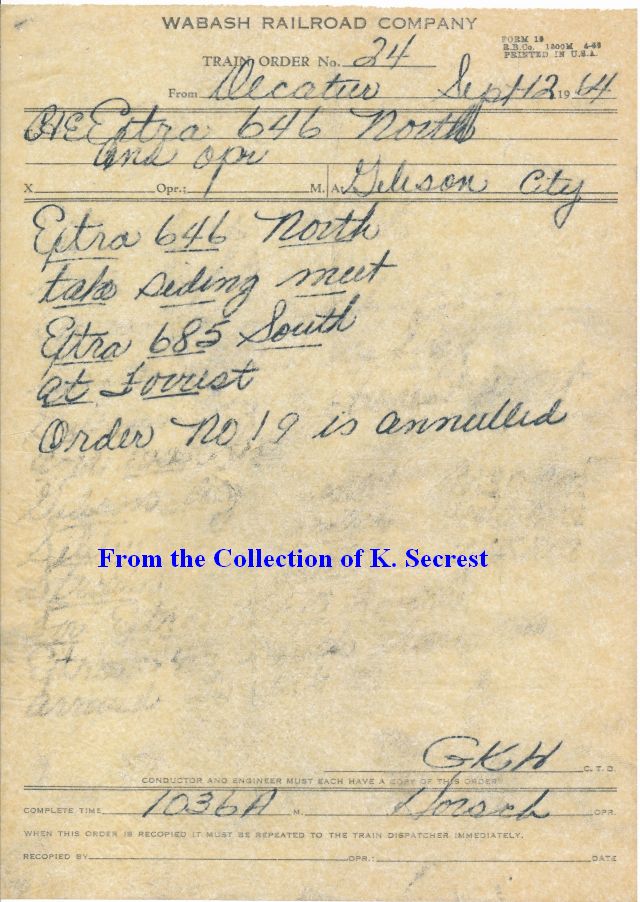 WABASH RAILROAD COMPANY
FORM 19
R.B.Co. 1200M 4-59
PRINTED IN U.S.A.
TRAIN ORDER No. 24
From Decatur Sept 12 19 64
C&E Extra 646 North
and opr
X Opr.; M. At Gibson City
Extra 646 North
take siding meet
Extra 685 South
at Forrest
Order No 19 is annulled
From the Collection of K. Secrest
GKH C. T. D.
CONDUCTOR AND ENGINEER MUST EACH HAVE A COPY OF THIS ORDER
COMPLETE TIME 1036A M. OPR.
WHEN THIS ORDER IS RECOPIED IT MUST BE REPEATED TO THE TRAIN DISPATCHER IMMEDIATELY.
RECOPIED BY OPR.: DATE